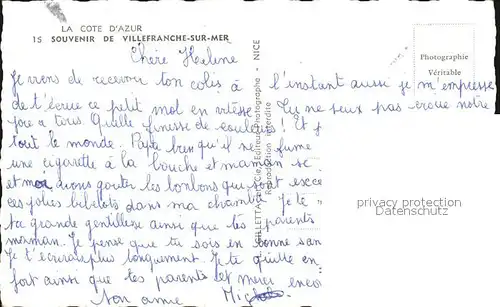 LA COTE D'AZUR
15 SOUVENIR DE VILLEFRANCHE-SUR-MER
Chère Hélène
Je viens de recevoir ton colis à l'instant aussi je m'empresse
de t'écrire ce petit mot en vitesse. Tu ne peux pas croire notre
joie à tous. Quelle finesse de couleurs! Et p
tout le monde. Papa bien qu'il ne fume
une cigarette à la bouche et maman se
et moi avons goûter les bonbons qui sont exce
ces jolies bibelots dans ma chambre. Je te
ta grande gentillesse ainsi que tes parents
maman. Je pense que tu sois en bonne san
Je t'écrirais plus longuement. Je te quitte en
fort ainsi que tes parents et merci enco
Ton amie Mich
GILLETTA et Cie, Editeur Photographe - NICE
Reproduction interdite
Photographie
Véritable
privacy protection
Datenschutz